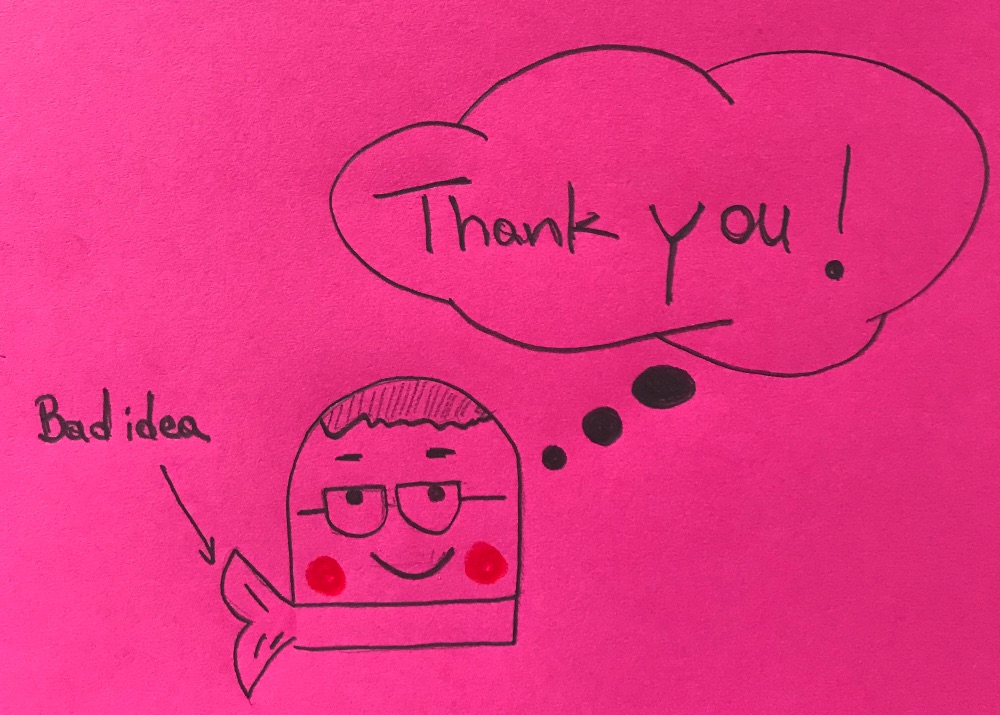 Thank you!
Bad idea